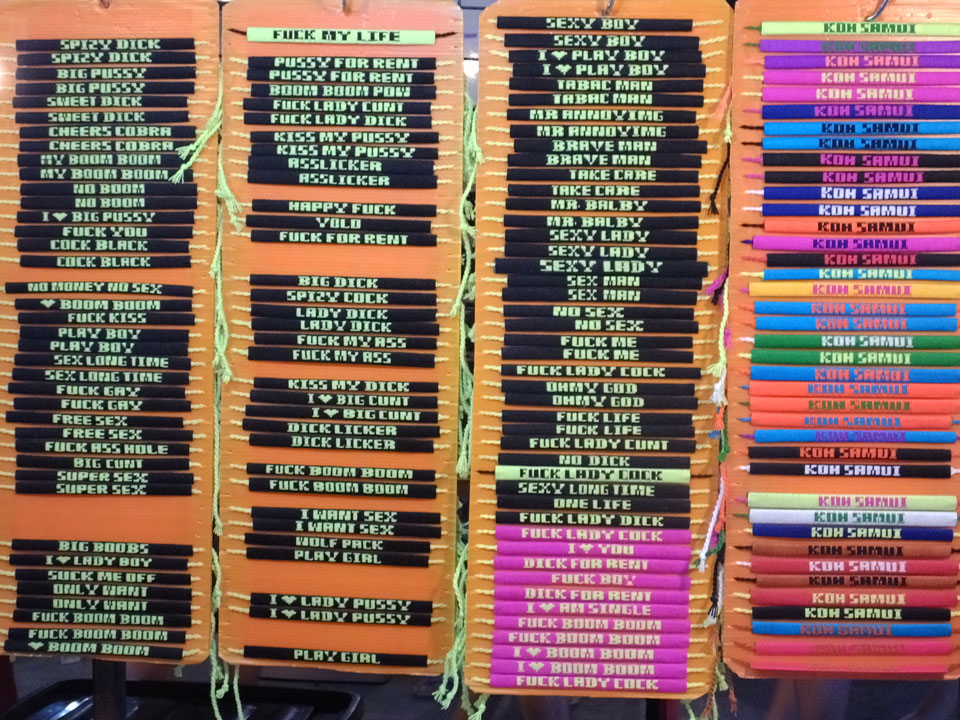 SPIZY DICK
SPIZY DICK
BIG PUSSY
BIG PUSSY
SWEET DICK
SWEET DICK
CHEERS COBRA
CHEERS COBRA
MY BOOM BOOM
MY BOOM BOOM
NO BOOM
NO BOOM
I ♥ BIG PUSSY
FUCK YOU
COCK BLACK
COCK BLACK
NO MONEY NO SEX
♥ BOOM BOOM
FUCK KISS
PLAY BOY
PLAY BOY
SEX LONG TIME
SEX LONG TIME
FUCK GAY
FUCK GAY
FREE SEX
FREE SEX
FUCK ASS HOLE
BIG CUNT
SUPER SEX
SUPER SEX
BIG BOOBS
I ♥ LADY BOY
SUCK ME OFF
ONLY WANT
ONLY WANT
FUCK BOOM BOOM
FUCK BOOM BOOM
♥ BOOM BOOM
FUCK MY LIFE
PUSSY FOR RENT
PUSSY FOR RENT
BOOM BOOM POW
FUCK LADY CUNT
FUCK LADY DICK
KISS MY PUSSY
KISS MY PUSSY
ASSLICKER
ASSLICKER
HAPPY FUCK
YOLO
FUCK FOR RENT
BIG DICK
SPIZY COCK
LADY DICK
LADY DICK
FUCK MY ASS
FUCK MY ASS
KISS MY DICK
I ♥ BIG CUNT
I ♥ BIG CUNT
DICK LICKER
DICK LICKER
FUCK BOOM BOOM
FUCK BOOM BOOM
I WANT SEX
I WANT SEX
WOLF PACK
PLAY GIRL
I ♥ LADY PUSSY
I ♥ LADY PUSSY
PLAY GIRL
SEXY BOY
SEXY BOY
I ♥ PLAY BOY
I ♥ PLAY BOY
TABAC MAN
TABAC MAN
MR ANNOYIMG
MR ANNOYIMG
BRAVE MAN
BRAVE MAN
TAKE CARE
TAKE CARE
MR. BALBY
MR. BALBY
SEXY LADY
SEXY LADY
SEXY LADY
SEX MAN
SEX MAN
NO SEX
NO SEX
FUCK ME
FUCK ME
FUCK LADY COCK
OHMY GOD
OHMY GOD
FUCK LIFE
FUCK LIFE
FUCK LADY CUNT
NO DICK
FUCK LADY COCK
SEXY LONG TIME
ONE LIFE
FUCK LADY DICK
FUCK LADY COCK
I ♥ YOU
DICK FOR RENT
FUCK BOY
DICK FOR RENT
I ♥ AM SINGLE
FUCK BOOM BOOM
FUCK BOOM BOOM
I ♥ BOOM BOOM
I ♥ BOOM BOOM
FUCK LADY COCK
KOH SAMUI
KOH SAMUI
KOH SAMUI
KOH SAMUI
KOH SAMUI
KOH SAMUI
KOH SAMUI
KOH SAMUI
KOH SAMUI
KOH SAMUI
KOH SAMUI
KOH SAMUI
KOH SAMUI
KOH SAMUI
KOH SAMUI
KOH SAMUI
KOH SAMUI
KOH SAMUI
KOH SAMUI
KOH SAMUI
KOH SAMUI
KOH SAMUI
KOH SAMUI
KOH SAMUI
KOH SAMUI
KOH SAMUI
KOH SAMUI
KOH SAMUI
KOH SAMUI
KOH SAMUI
KOH SAMUI
KOH SAMUI
KOH SAMUI
KOH SAMUI
KOH SAMUI
KOH SAMUI
KOH SAMUI